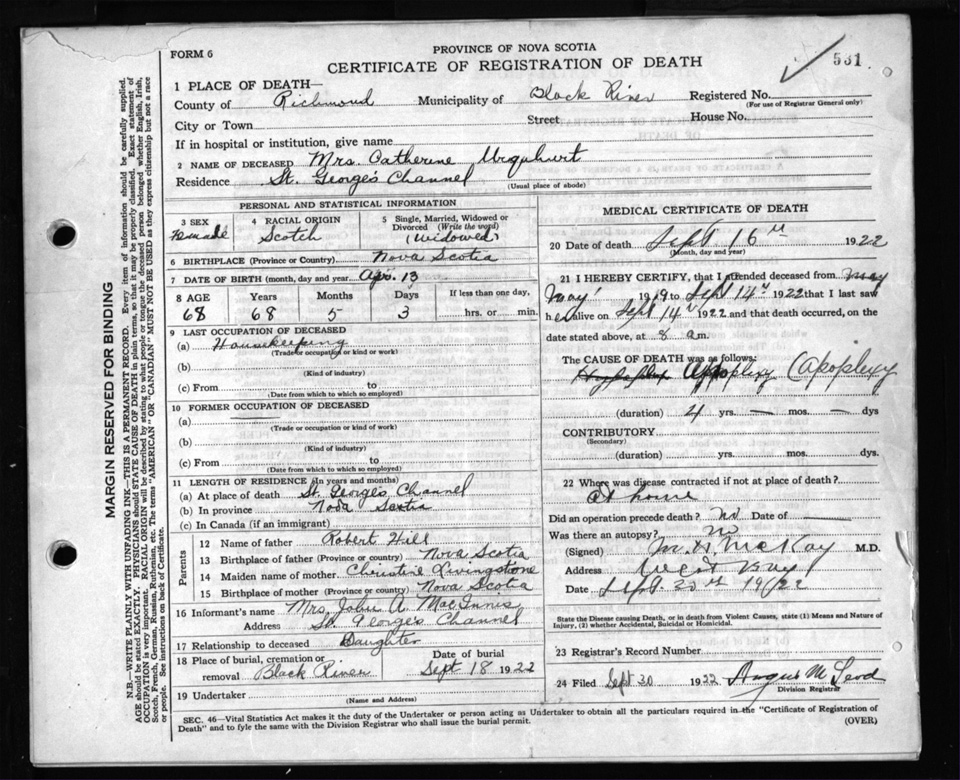 FORM 6
PROVINCE OF NOVA SCOTIA
CERTIFICATE OF REGISTRATION OF DEATH
531
1 PLACE OF DEATH—
County of Richmond Municipality of Black River Registered No.
(For use of Registrar General only)
City or Town Street House No.
If in hospital or institution, give name
2 NAME OF DECEASED Mrs. Catherine Urquhart
Residence St. George's Channel
(Usual place of abode)
PERSONAL AND STATISTICAL INFORMATION
3 SEX Female
4 RACIAL ORIGIN Scotch
5 Single, Married, Widowed or Divorced (Write the word) (Widowed)
6 BIRTHPLACE (Province or Country) Nova Scotia
7 DATE OF BIRTH (month, day and year Apr. 13
8 AGE Years Months Days If less than one day,
68 68 5 3 hrs. or min.
9 LAST OCCUPATION OF DECEASED
(a) Housekeeping
(Trade or occupation or kind or work)
(b)
(Kind of industry)
(c) From to
(Date from which to which so employed)
10 FORMER OCCUPATION OF DECEASED
(a)
(Trade or occupation or kind of work)
(b)
(Kind of industry)
(c) From to
(Date from which to which so employed)
11 LENGTH OF RESIDENCE (in years and months)
(a) At place of death St. George's Channel
(b) In province Nova Scotia
(c) In Canada (if an immigrant)
Parents
12 Name of father Robert Hill
13 Birthplace of father (Province or country) Nova Scotia
14 Maiden name of mother Christine Livingstone
15 Birthplace of mother (Province or country) Nova Scotia
16 Informant's name Mrs. John A. MacInnis
Address St. George's Channel
17 Relationship to deceased Daughter
18 Place of burial, cremation or removal Black River Date of burial Sept 18 1922
19 Undertaker
(Name and Address)
MEDICAL CERTIFICATE OF DEATH
20 Date of death Sept 16th 1922
(Month, day and year)
21 I HEREBY CERTIFY, that I attended deceased from May
May 1919 to Sept 14th 1922 that I last saw
her alive on Sept 14th 1922 and that death occurred, on the
date stated above, at 8 a.m.
The CAUSE OF DEATH was as follows:
Apoplexy (Apoplexy
(duration) 4 yrs. — mos. — dys
CONTRIBUTORY
(Secondary)
(duration) yrs. mos. dys.
22 Where was disease contracted if not at place of death?
at home
Did an operation precede death? No Date of —
Was there an autopsy? No
(Signed) McKay M.D.
Address West Bay
Date Sept. 1922
State the Disease causing Death, or in death from Violent Causes, state (1) Means and Nature of
Injury, (2) whether Accidental, Suicidal or Homicidal.
23 Registrar's Record Number
24 Filed Sept 30 1922 Angus McLeod
Division Registrar
SEC. 46—Vital Statistics Act makes it the duty of the Undertaker or person acting as Undertaker to obtain all the particulars required in the "Certificate of Registration of
Death" and to fyle the same with the Division Registrar who shall issue the burial permit. (OVER)
MARGIN RESERVED FOR BINDING
N.B.—WRITE PLAINLY WITH UNFADING INK—THIS IS A PERMANENT RECORD. Every item of information should be carefully supplied.
AGE should be stated EXACTLY. PHYSICIANS should STATE CAUSE OF DEATH in plain terms, so that it may be properly classified. Exact statement of
OCCUPATION is very important. RACIAL ORIGIN will be described by stating to what people or tongue the deceased person belonged whether English, Irish,
Scotch, French, German, Russian, Ruthenian, etc. The terms "AMERICAN" OR "CANADIAN" MUST NOT BE USED as they express citizenship but not a race
or people. See instructions on back of Certificate.